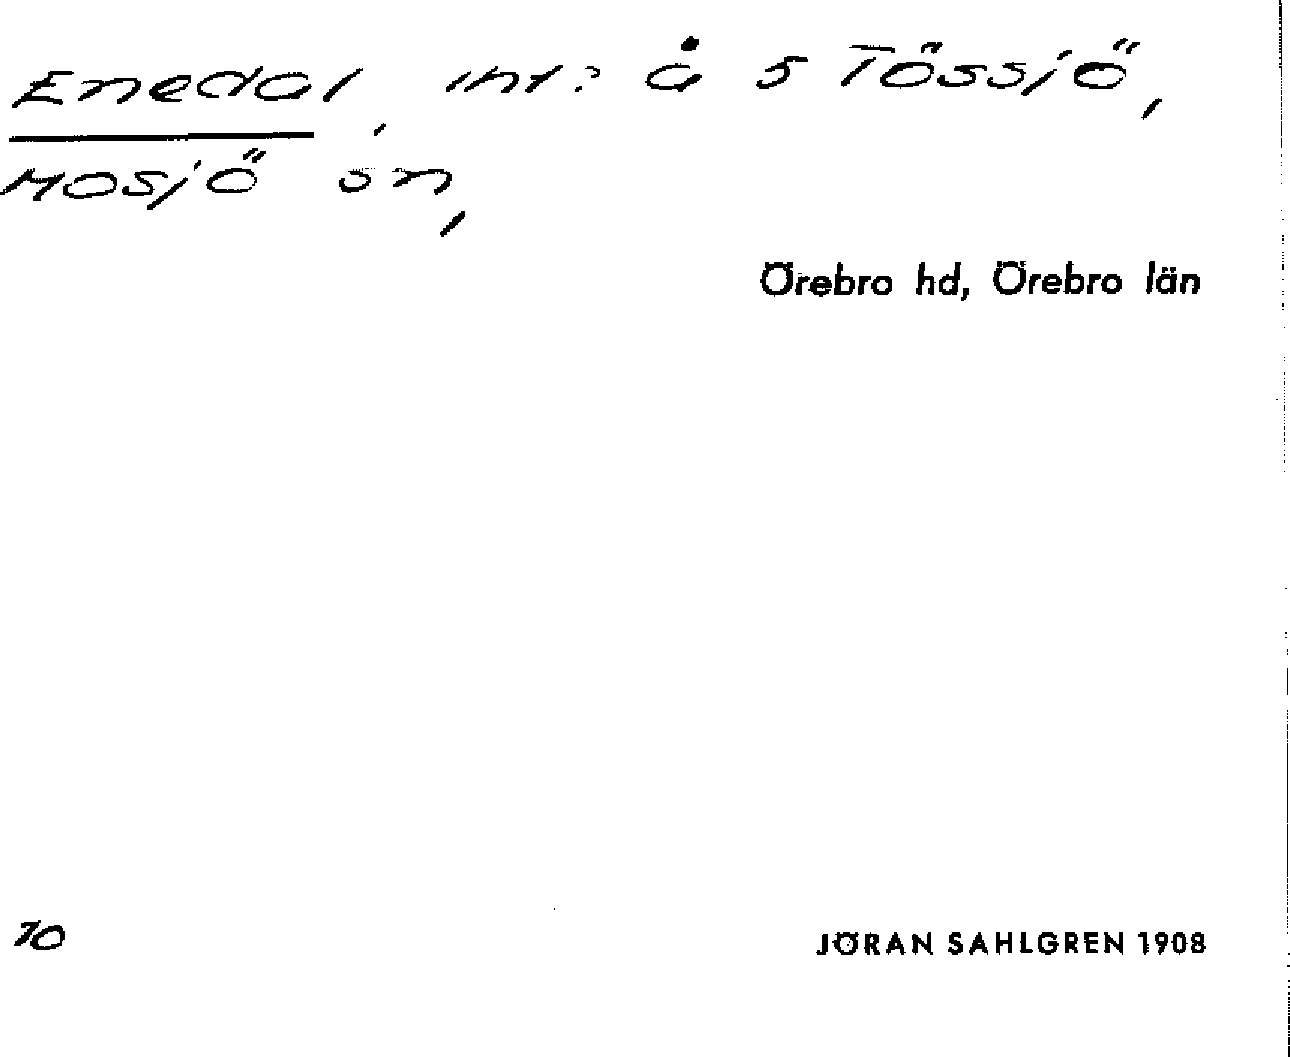 Enedal, int. å S Tössjö,
Mosjö sn,
Örebro hd, Örebro län
10
JÖRAN SAHLGREN 1908